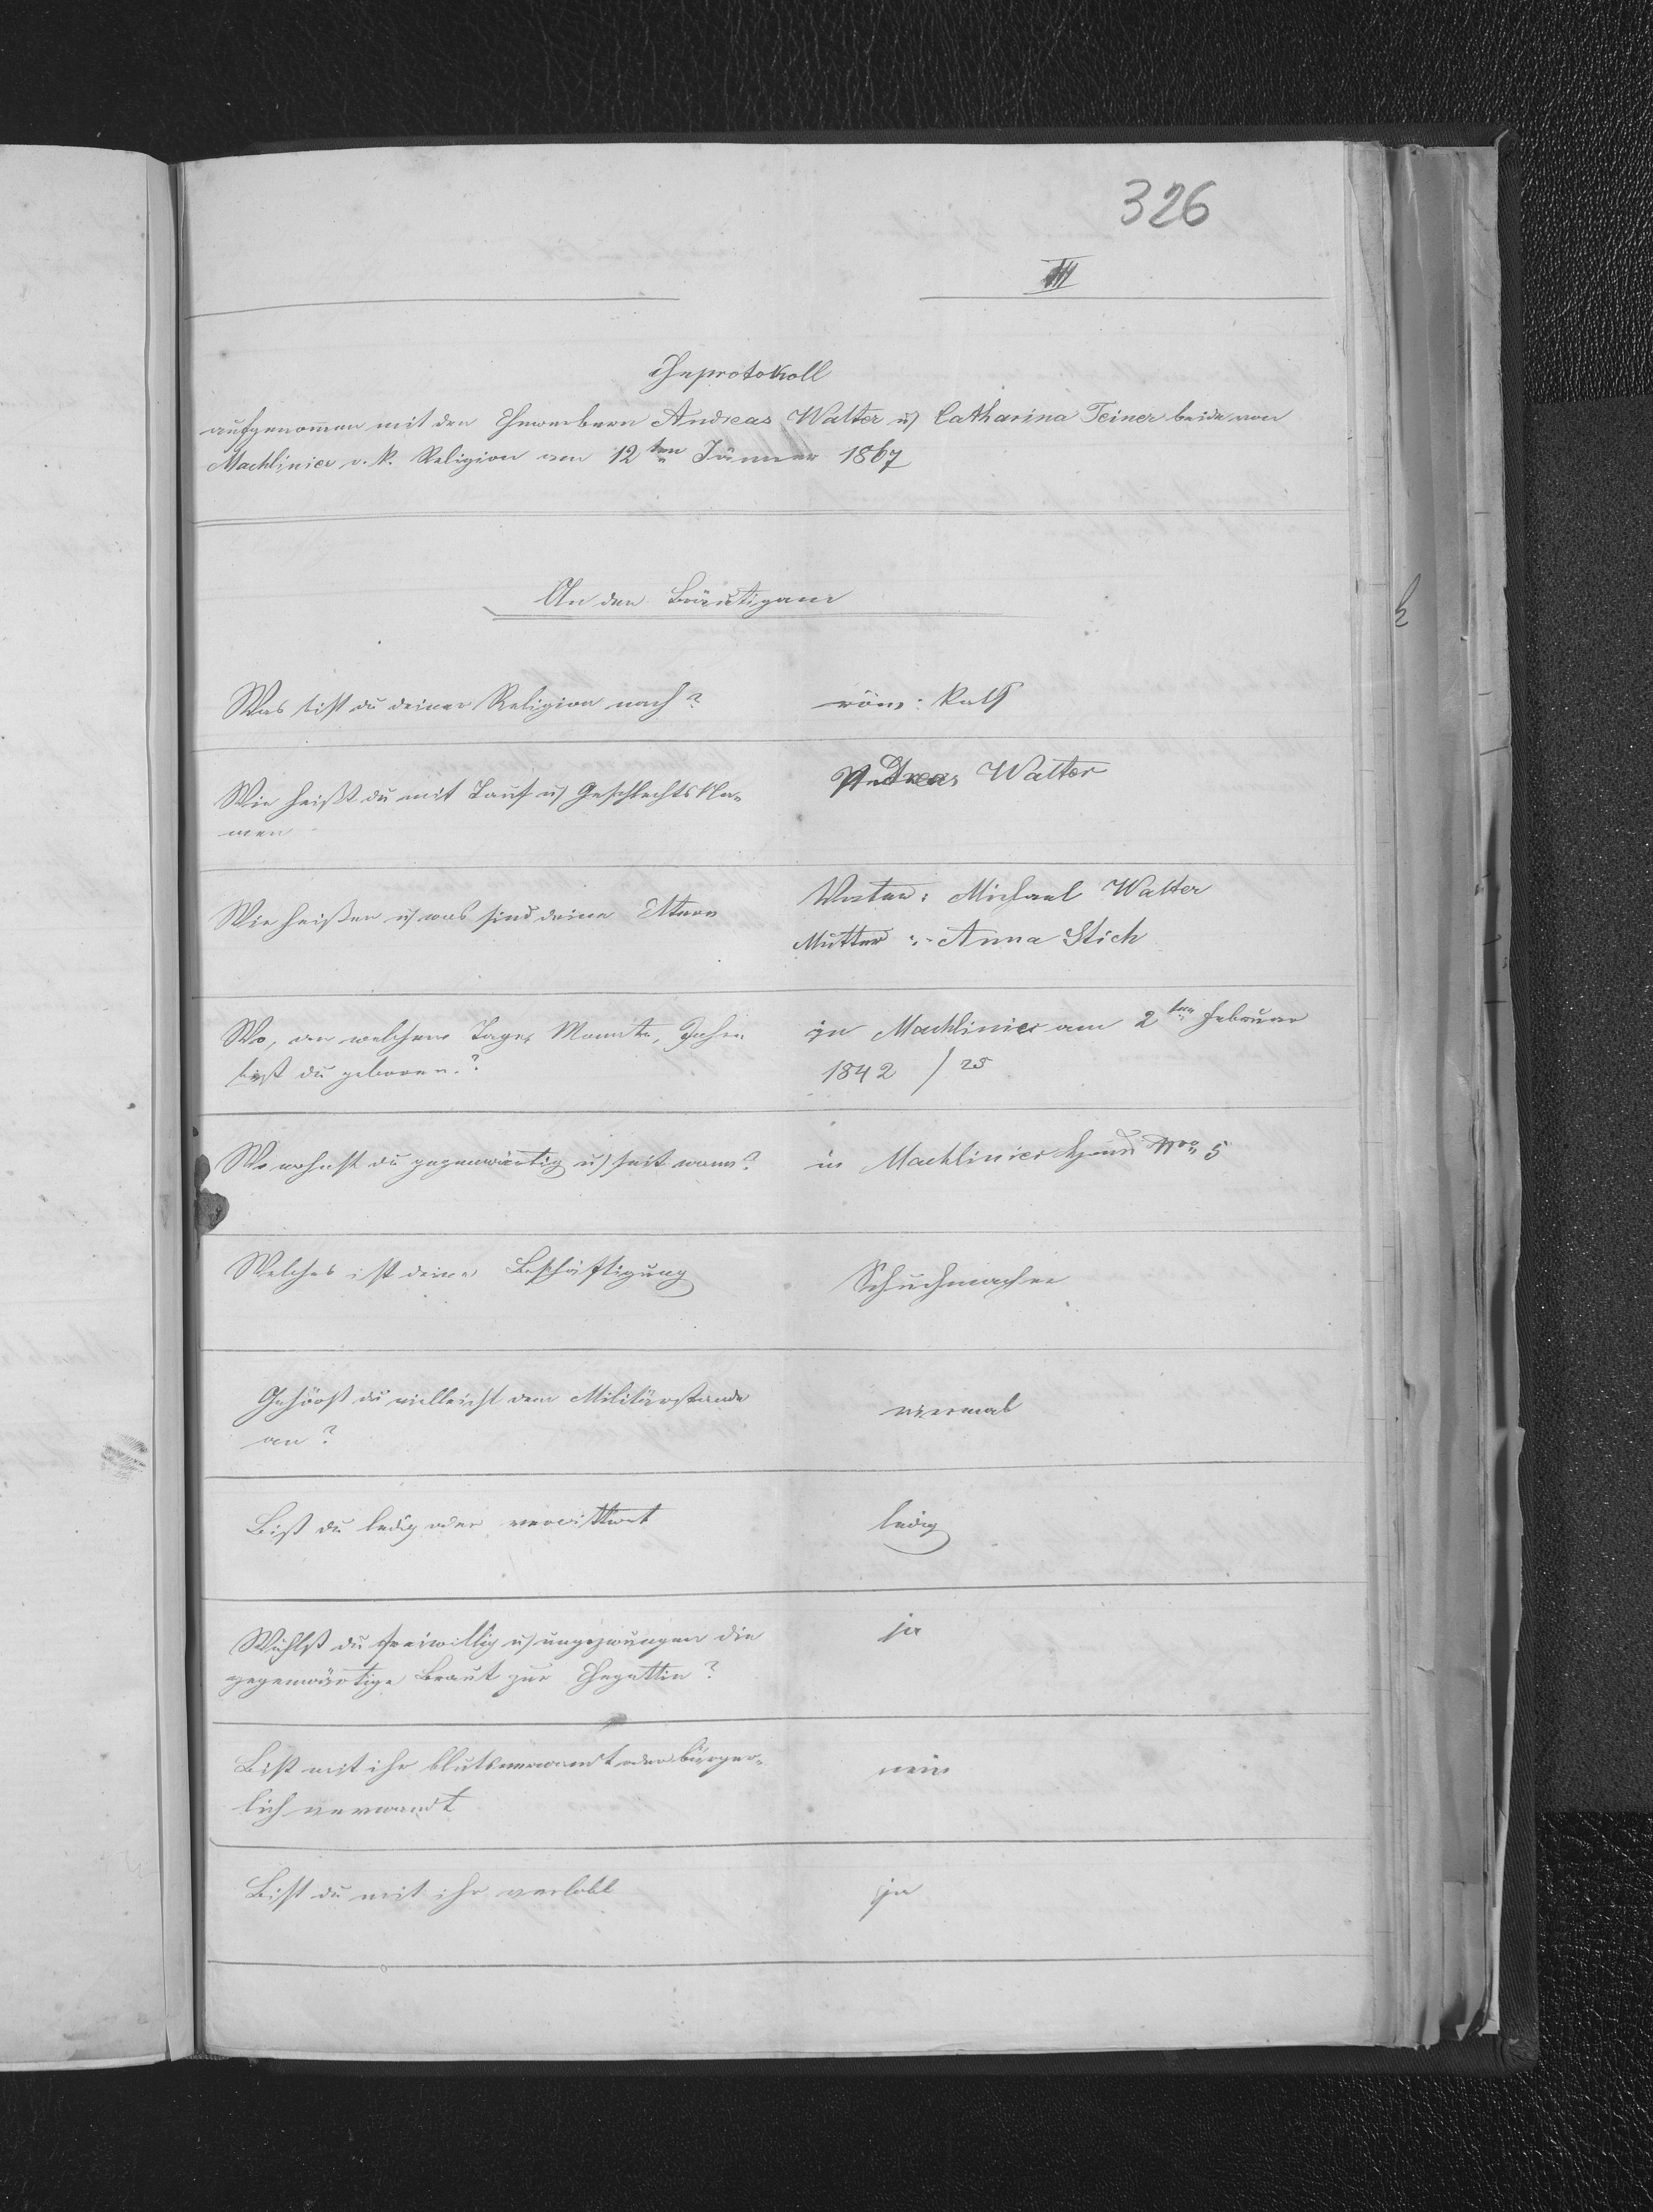 326
III
Eheprotokoll
aufgenommen mit den Ehewerbern Andreas Walter u Catharina Teiner beide von
Machlinier r. k. Religion am 12ten Jänner 1867
An den Bräutigam
Was bist du deiner Religion nach?
röm: kath
Wie heißt du mit Tauf u Geschlechts Na-
men
Andreas Walter
Wie heißen u was sind deine Eltern
Vater: Michael Walter
Mutter: Anna Stich
Wo, an welchem Tage, Monate, Jahre
bist du geboren?
in Machlinier am 2ten Februar
1842 / 25
Wo wohnst du gegenwärtig u seit wann?
in Machlinier Haus Nro 5
Welches ist deine Beschäftigung
Schuhmacher
Gehörst du vielleicht dem Militärstande
an?
niemals
Bist du ledig oder verwittwet
ledig
Wählst du freiwillig u ungezwungen die
gegenwärtige Braut zur Ehegattin?
ja
Bist mit ihr blutsverwandt oder bürger-
lich verwandt
nein
Bist du mit ihr verlobt
ja